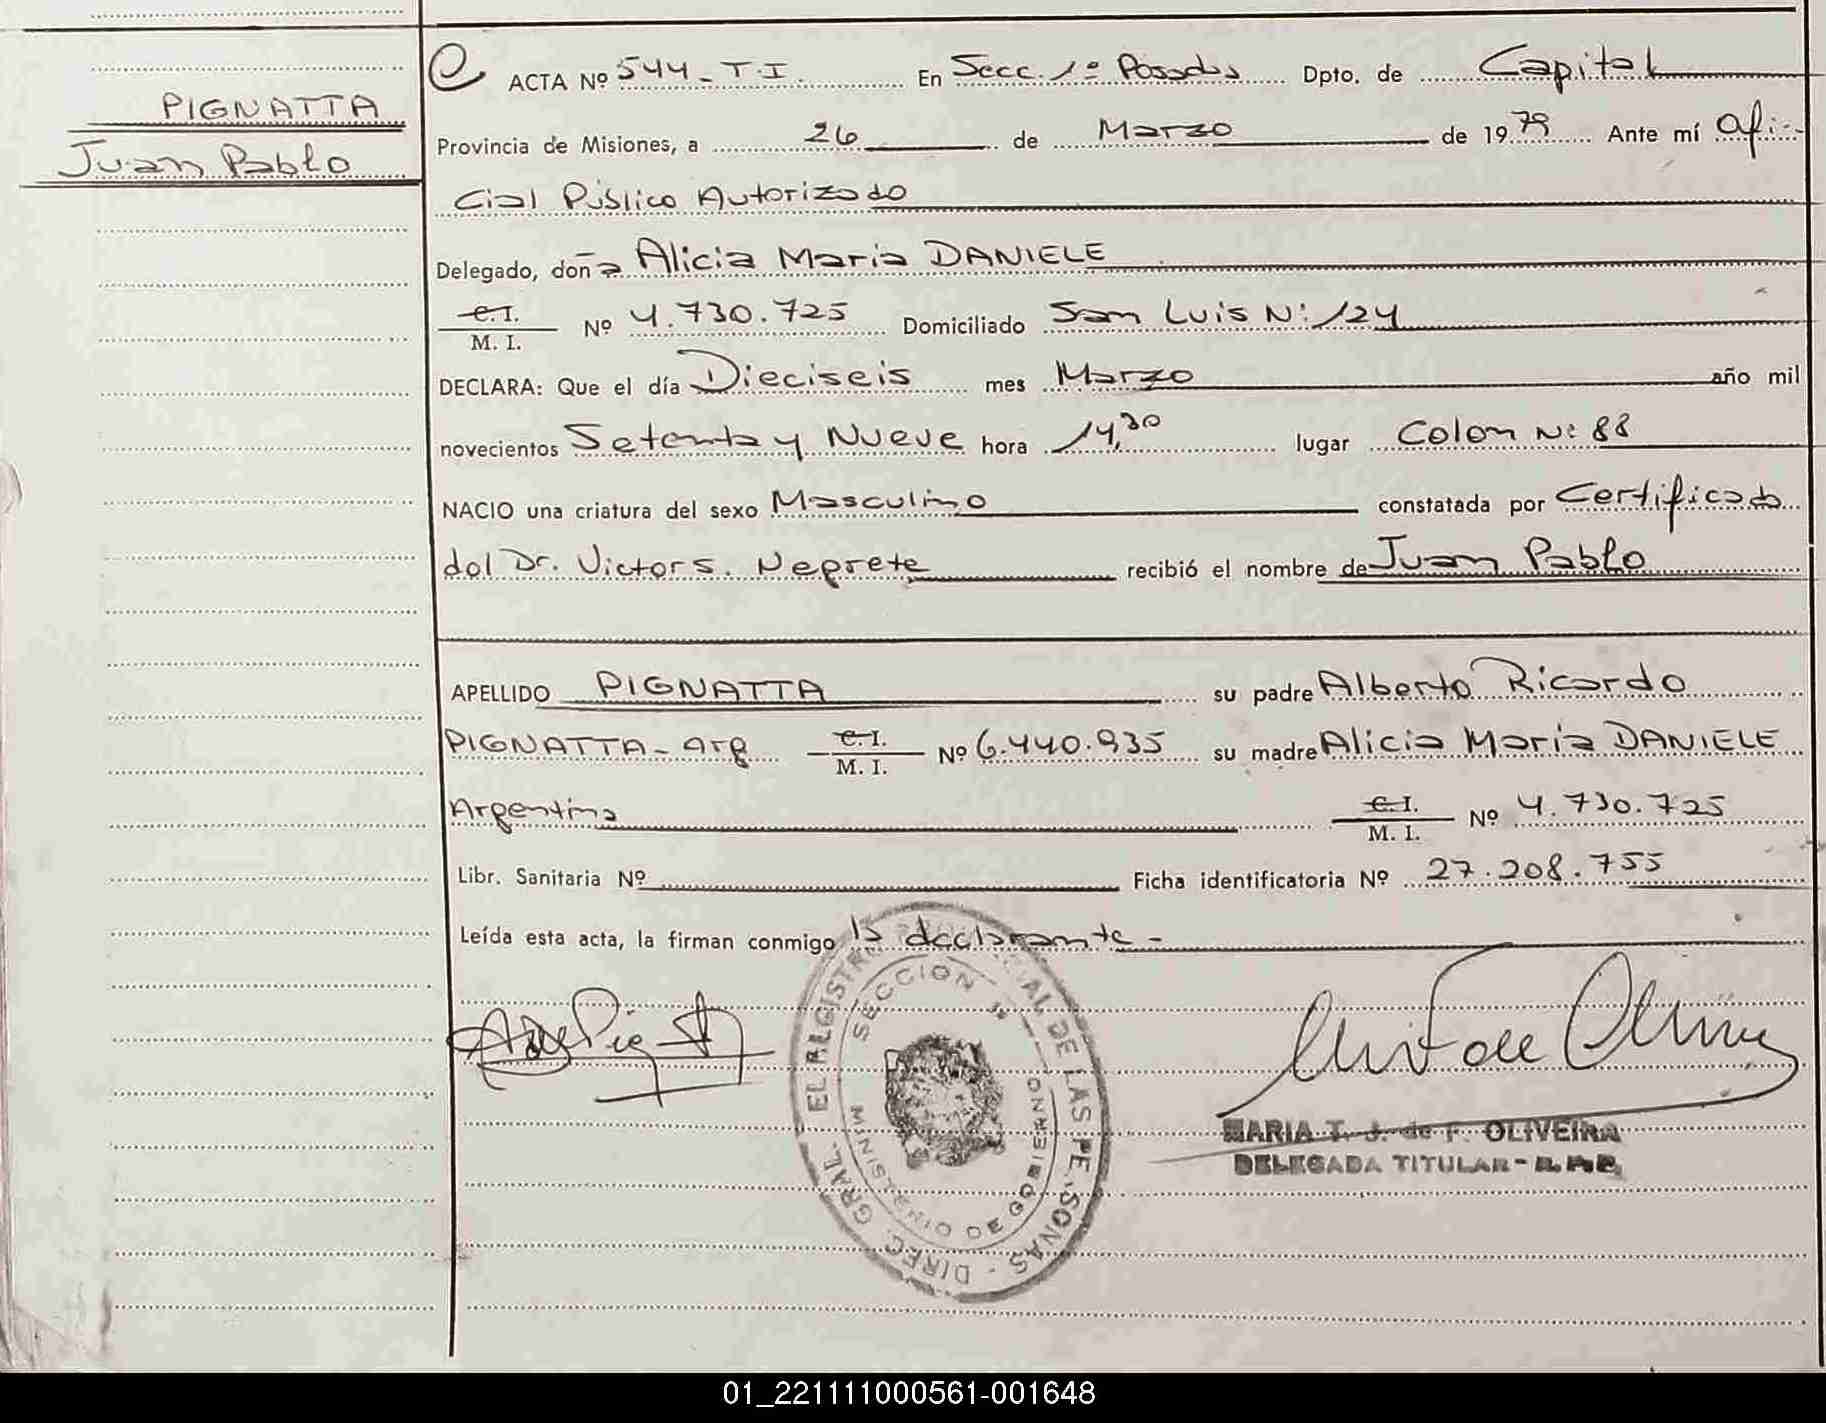 PIGNATTA
Juan Pablo
ACTA Nº 544 - T.I. En Secc. 1º Posadas Dpto. de Capital
Provincia de Misiones, a 26 de Marzo de 1979 Ante mí Ofi-
cial Público Autorizado
Delegado, doña Alicia Maria DANIELE
C.I.
M. I. Nº 4.730.725 Domiciliado San Luis Nº 124
DECLARA: Que el día Dieciseis mes Marzo año mil
novecientos Setenta y Nueve hora 14,30 lugar Colon Nº 88
NACIO una criatura del sexo Masculino constatada por Certificado
del Dr. Victor S. Neprete recibió el nombre de Juan Pablo
APELLIDO PIGNATTA su padre Alberto Ricardo
PIGNATTA - Arg. C.I. M. I. Nº 6.440.935 su madre Alicia Maria DANIELE
Argentina C.I. M. I. Nº 4.730.725
Libr. Sanitaria Nº Ficha identificatoria Nº 27.208.755
Leída esta acta, la firman conmigo la declarante -
SECCION 1ª
MINISTERIO DE GOBIERNO
DIREC. GRAL. DE LAS PERSONAS
MARIA T. J. de F. OLIVEIRA
DELEGADA TITULAR - R.P.P.
01_221111000561-001648